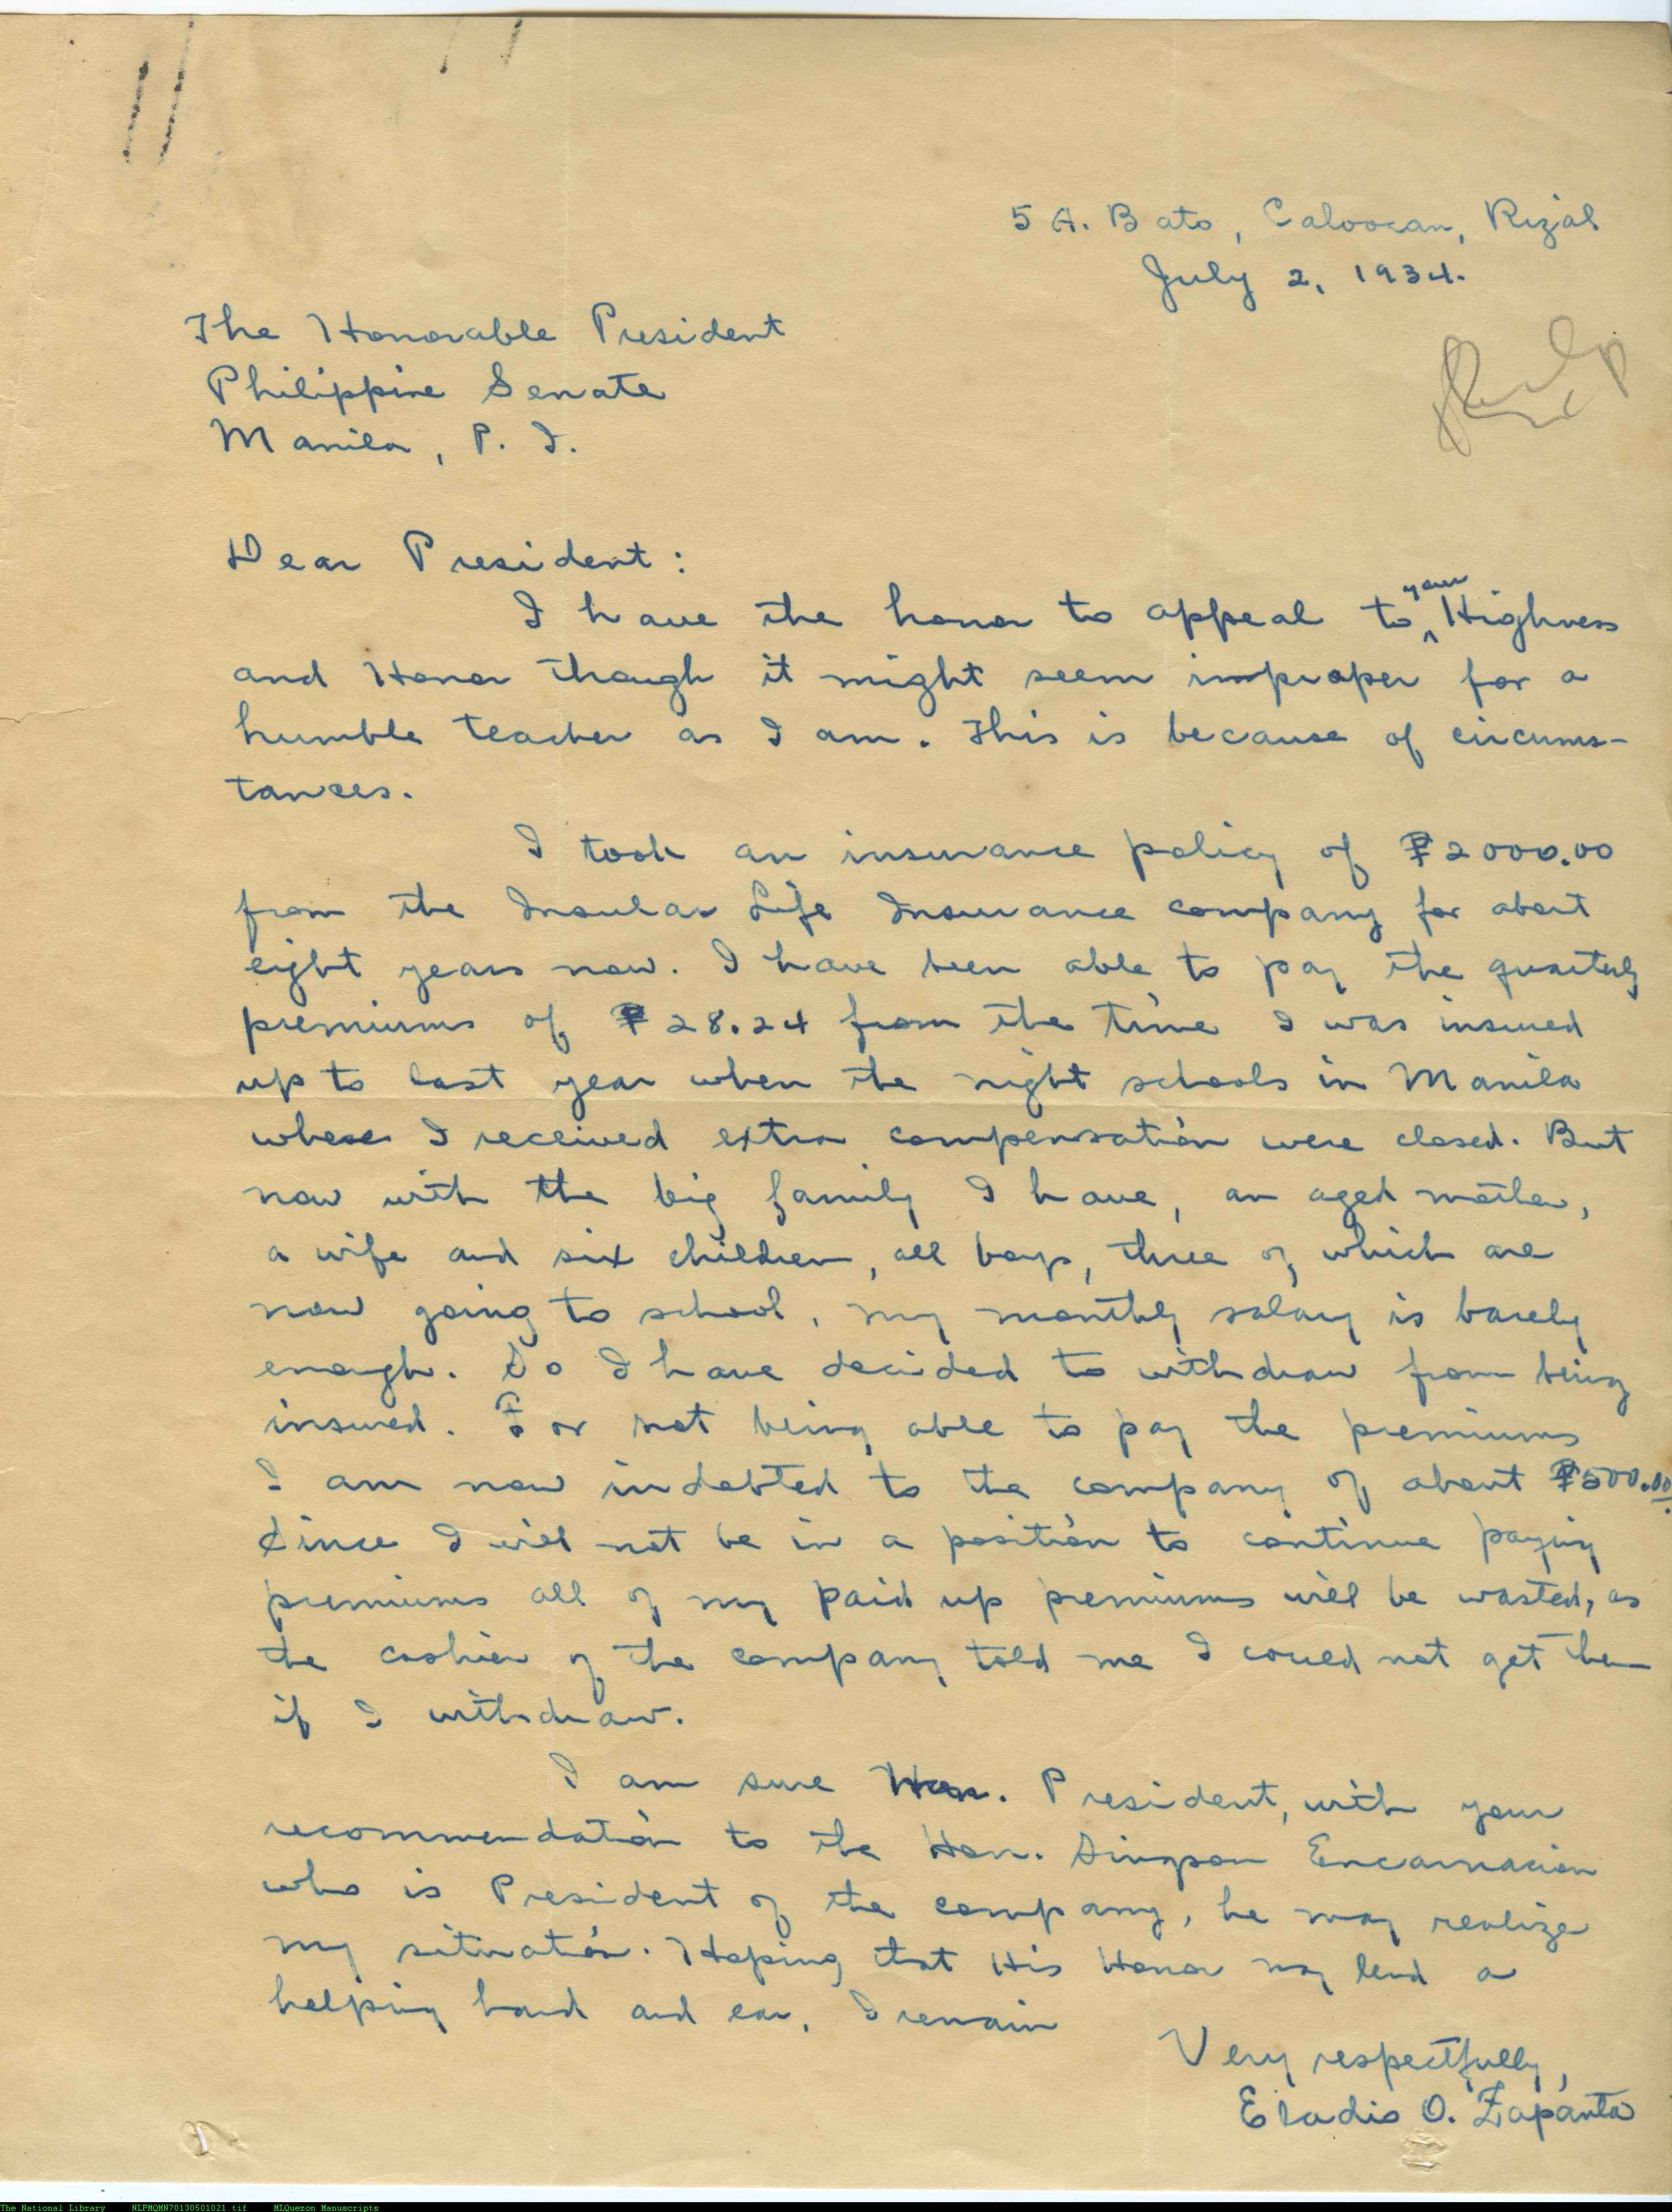 5 A. Bato, Caloocan, Rizal
July 2, 1934.
The Honorable President
Philippine Senate
Manila, P. I.
Dear President:
I have the honor to appeal to your Highness
and Honor though it might seem improper for a
humble teacher as I am. This is because of circums-
tances.
I took an insurance policy of ₱2000.00
from the Insular Life Insurance company for about
eight years now. I have been able to pay the quarterly
premiums of ₱28.24 from the time I was insured
up to last year when the night schools in Manila
where I received extra compensation were closed. But
now with the big family I have, an aged mother,
a wife and six children, all boys, three of which are
now going to school, my monthly salary is barely
enough. So I have decided to withdraw from being
insured. For not being able to pay the premiums
I am now indebted to the company of about ₱500.00.
Since I will not be in a position to continue paying
premiums all of my paid up premiums will be wasted, as
the cashier of the company told me I could not get them
if I withdraw.
I am sure Hon. President, with your
recommendation to the Hon. Singson Encarnacion
who is President of the company, he may realize
my situation. Hoping that His Honor may lend a
helping hand and ear, I remain
Very respectfully,
Eladio O. Zapanta
The National Library NLPMQMN70130501021.tif MLQuezon Manuscripts